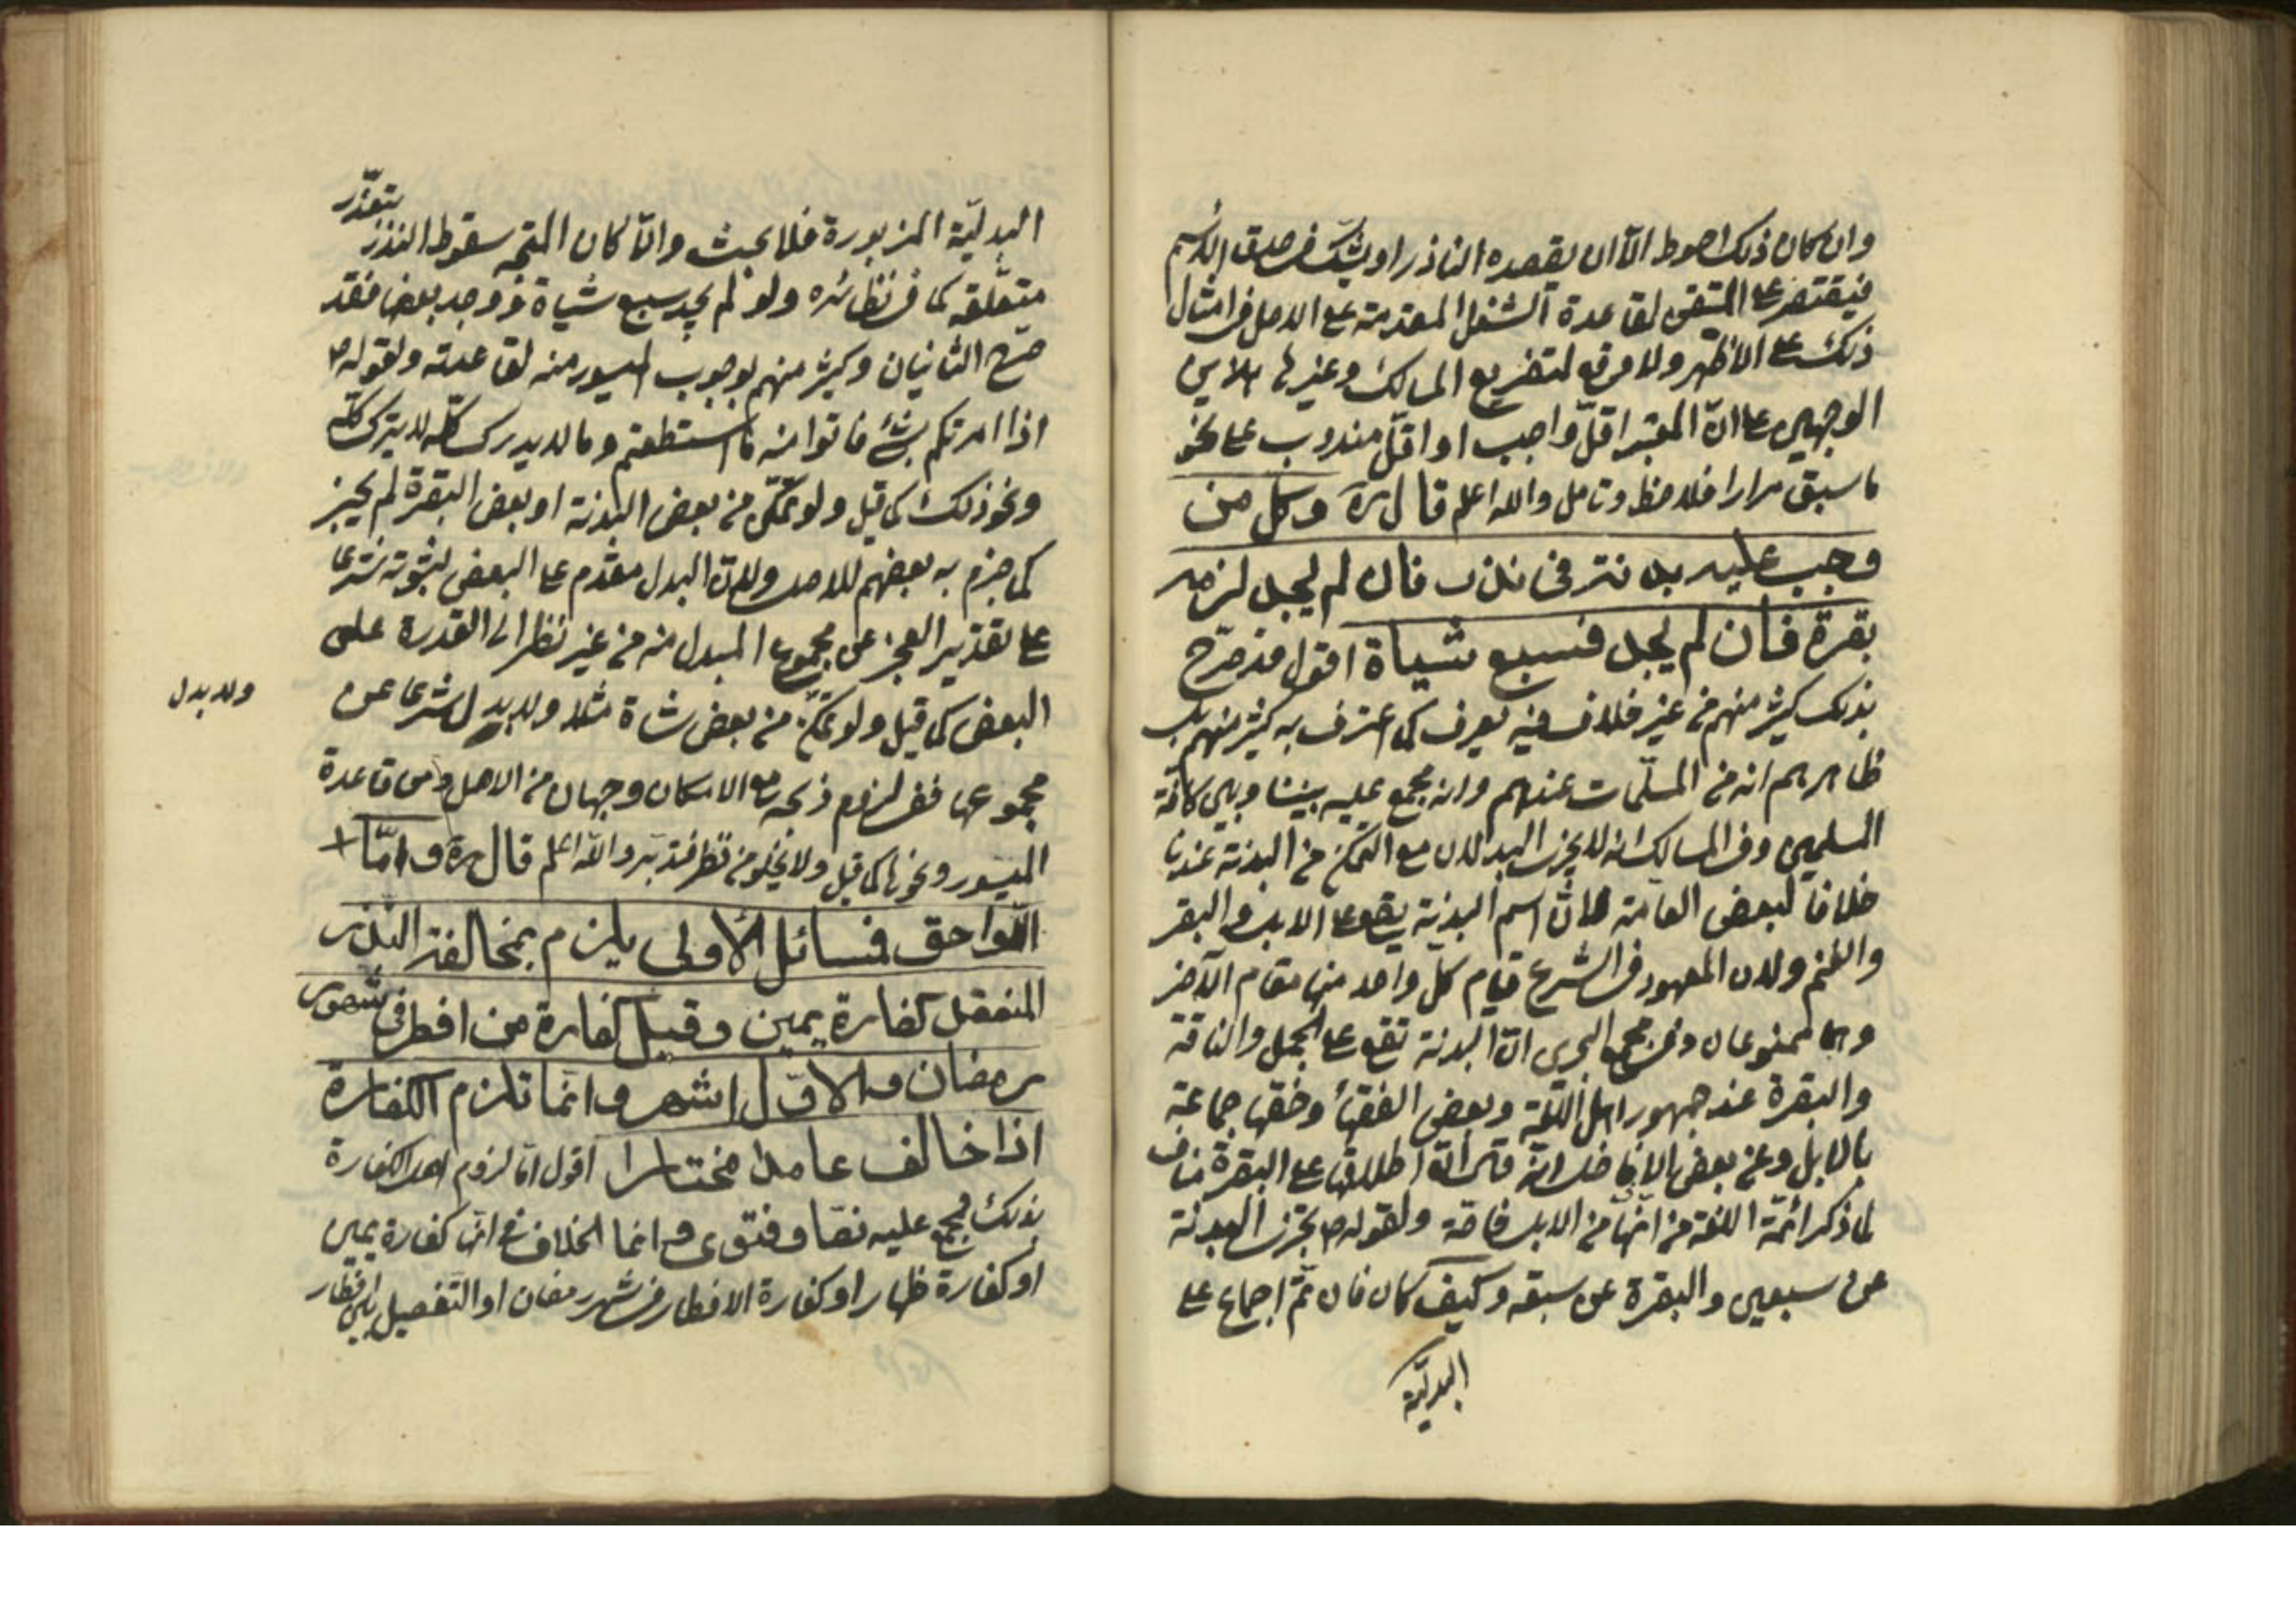 وان كان ذلك احوط الا ان يقصده الناذر او يشك في صدق الاسم
فيقتصر على المتيقن لقاعدة الشغل المقدمة على الاصل في امثال
ذلك على الاظهر ولا موقع لتفريع المسالك وغيرها هلاين
الوجهين على ان المعتبر اقل واجب او اقل مندوب على نحو
ما سبق مرارا فلاحظ وتامل والله اعلم قال ره وكل من
وجب عليه بدنة في نذر فان لم يجد لزمه
بقرة فان لم يجد فسبع شياة اقول قد صرح
بذلك كثير منهم من غير خلاف فيه يعرف كما اعترف به كثير منهم بل
ظاهرهم انه من المسلمات عندهم وانه مجمع عليه بيننا وبين كافة
المسلمين وفي المسالك انه لا يجزي البدلان مع التمكن من البدنة عندنا
خلافا لبعض العامة لان اسم البدنة يقع على الابل والبقر
والغنم ولان المعهود في الشرع قيام كل واحد منها مقام الآخر
وهما ممنوعان وفي مجمع البحرين ان البدنة تقع على الجمل والناقة
والبقرة عند جمهور اهل اللغة وبعض الفقهاء وخصها جماعة
بالابل وعن بعض الافاضل انه قال ان اطلاقها على البقرة مناف
لما ذكر ائمة اللغة من انها من الابل خاصة ولقوله ص تجزي البدنة
عن سبعين والبقرة عن سبعة وكيف كان فان تم اجماع على
البدلية
البدلية المزبورة فلا بحث والا كان المتجه سقوط النذر بتعذر
متعلقه كما في نظائره ولو لم يجد سبع شياة ووجد بعضها فقد
صرح الثانيان وكثير منهم بوجوب الميسور منه لقاعدته ولقوله ص
اذا امرتكم بشئ فاتوا منه ما استطعتم وما لا يدرك كله لا يترك كله
ونحو ذلك كما قيل ولو تمكن من بعض البدنة او بعض البقرة لم يجز
كما جزم به بعضهم للاصل ولان البدل مقدم على البعض لثبوته شرعا
على تقدير العجز عن مجموع المبدل منه من غير نظر الى القدرة على
البعض كما قيل ولو تمكن من بعض شاة مثلا ولا بدل شرعا عن
ولا بدل
مجموعها ففي لزوم ذبحه مع الامكان وجهان من الاصل ومن قاعدة
الميسور ونحوها كما قيل ولا يخلو من نظر فتدبر والله اعلم قال ره واما
اللواحق فمسائل الاولى يلزم بمخالفة النذر
المنعقد كفارة يمين وقيل كفارة من افطر في شهر
رمضان والاول اشهر وانما تلزم الكفارة
اذا خالف عامدا مختارا اقول اما لزوم اصل الكفارة
بذلك مجمع عليه نصا وفتوى وانما الخلاف في انها كفارة يمين
او كفارة ظهار او كفارة الافطار في شهر رمضان او التفصيل بين افطار